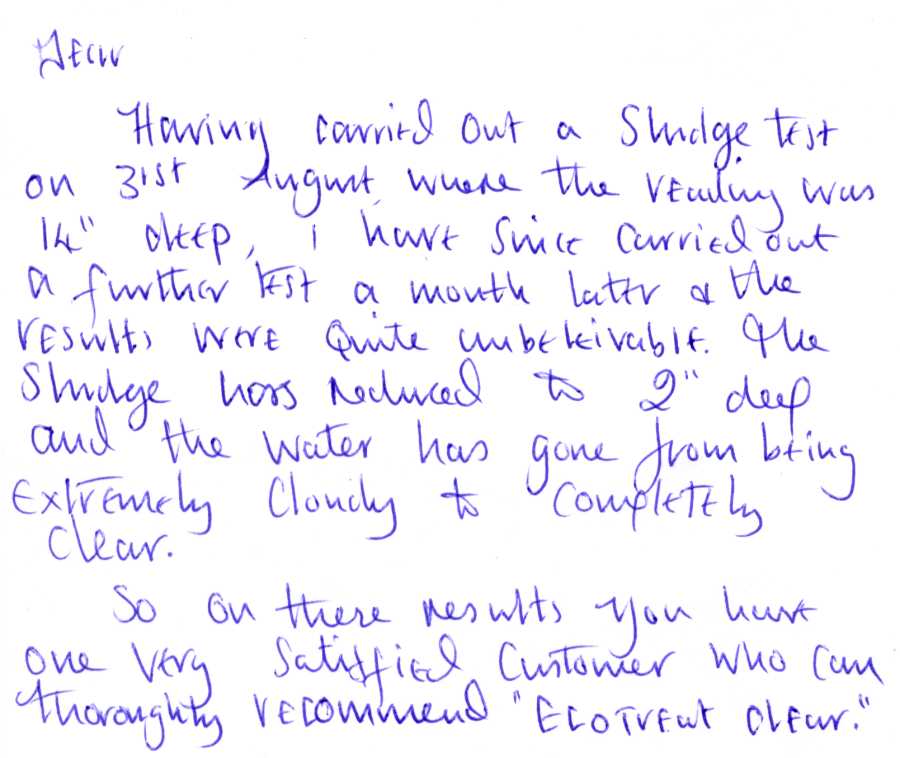 Dear
Having carried out a Sludge test
on 31st August, where the reading was
14" deep, i have since carried out
a further test a month later & the
results were quite unbeleivable. The
Sludge has reduced to 2" deep
and the water has gone from being
extremely cloudy to completely
clear.
So on these results you have
one very satisfied customer who can
thoroughly recommend "Ecotreat clear."